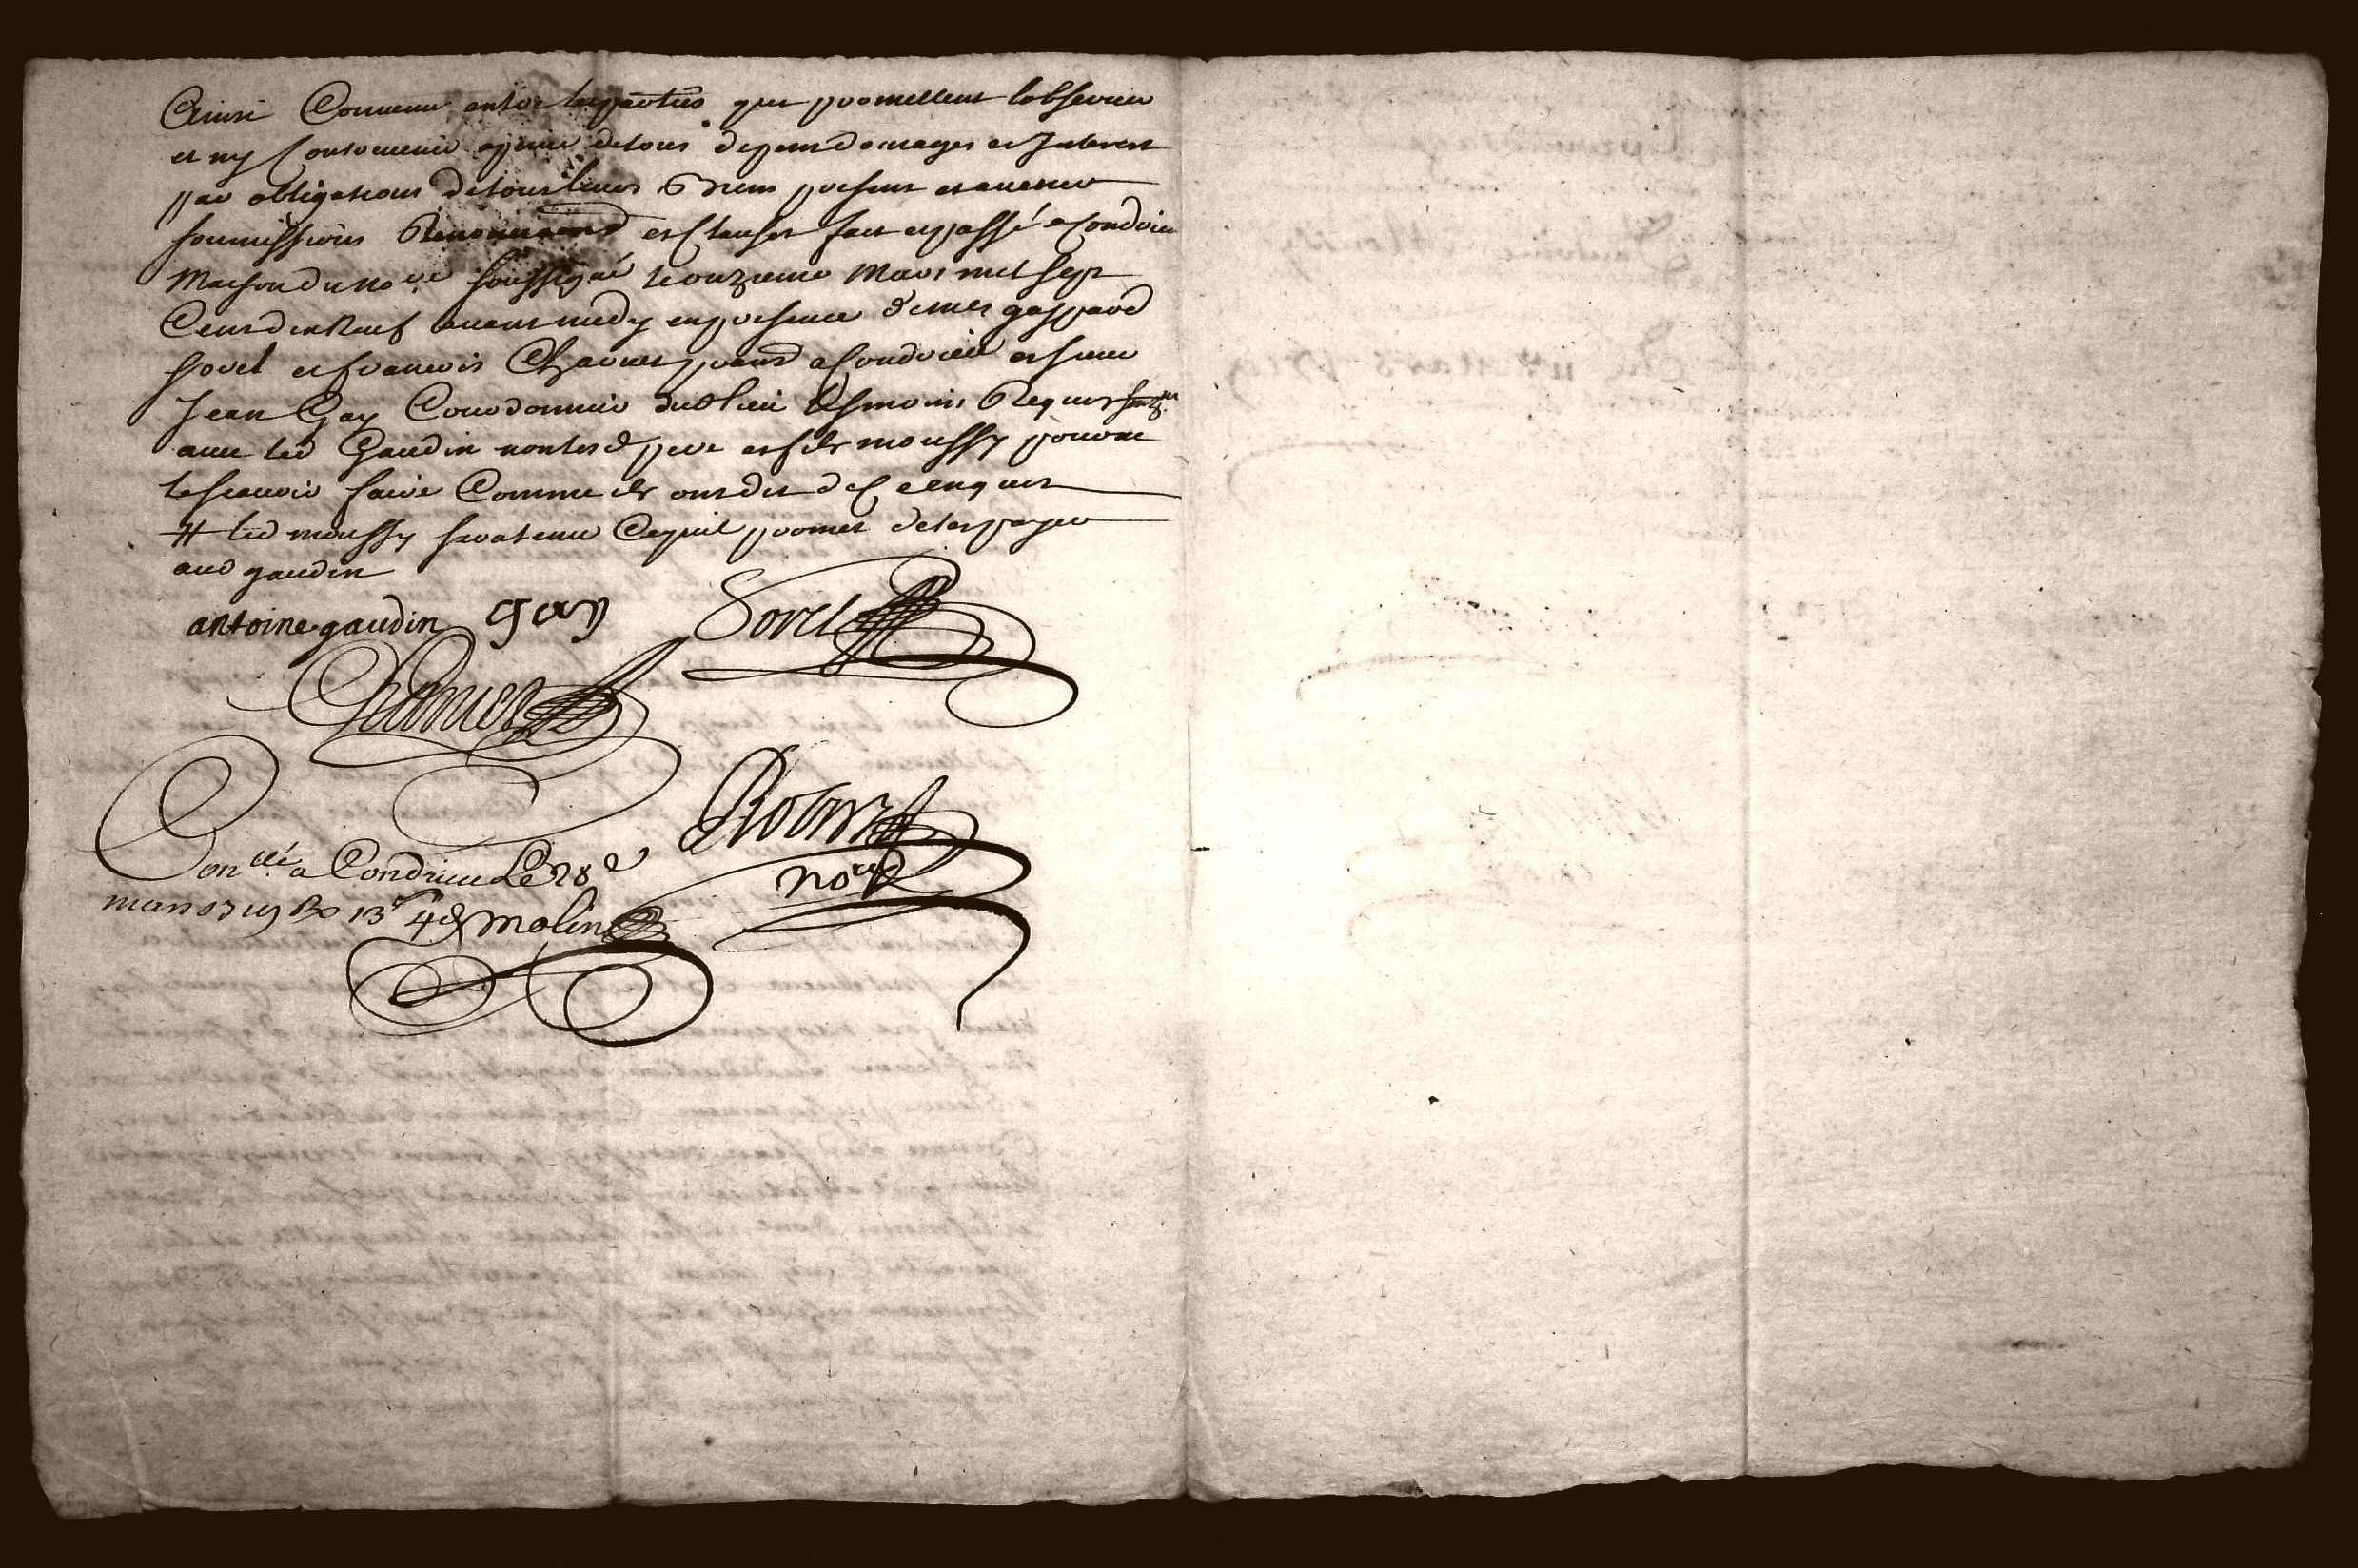 Ainsi Convenu entre les parties que promettent lobserver
et ny Contrevenir a peine de tous depens domages et Interest
par obligations de tous leurs Biens presents et avenir
soumissions Renonciaons et Clauses fait et passé a Condrieu
Maison du no.re soussigné le onzieme Mars mil sept
Cens dix Neuf avant midy en presence de mes gaspard
sorel et francois Charvet prand a Condrieu et sieur
Jean Gay Courdonnier dud lieu tesmoins Requis
avec led Gaudin non lesd pere et fils moussy pour ne
le scavoir faire Comme ils ont dit de Ce enquis
# led moussy sera tenu Ce quil promet de les payer
aud gaudin
antoine gaudin gay Sorel
Charvet
Robert
Con.llé a Condrieu Le 28e no.re
mars 1719 Ro 13s 4d Molin
11e Mars 1719